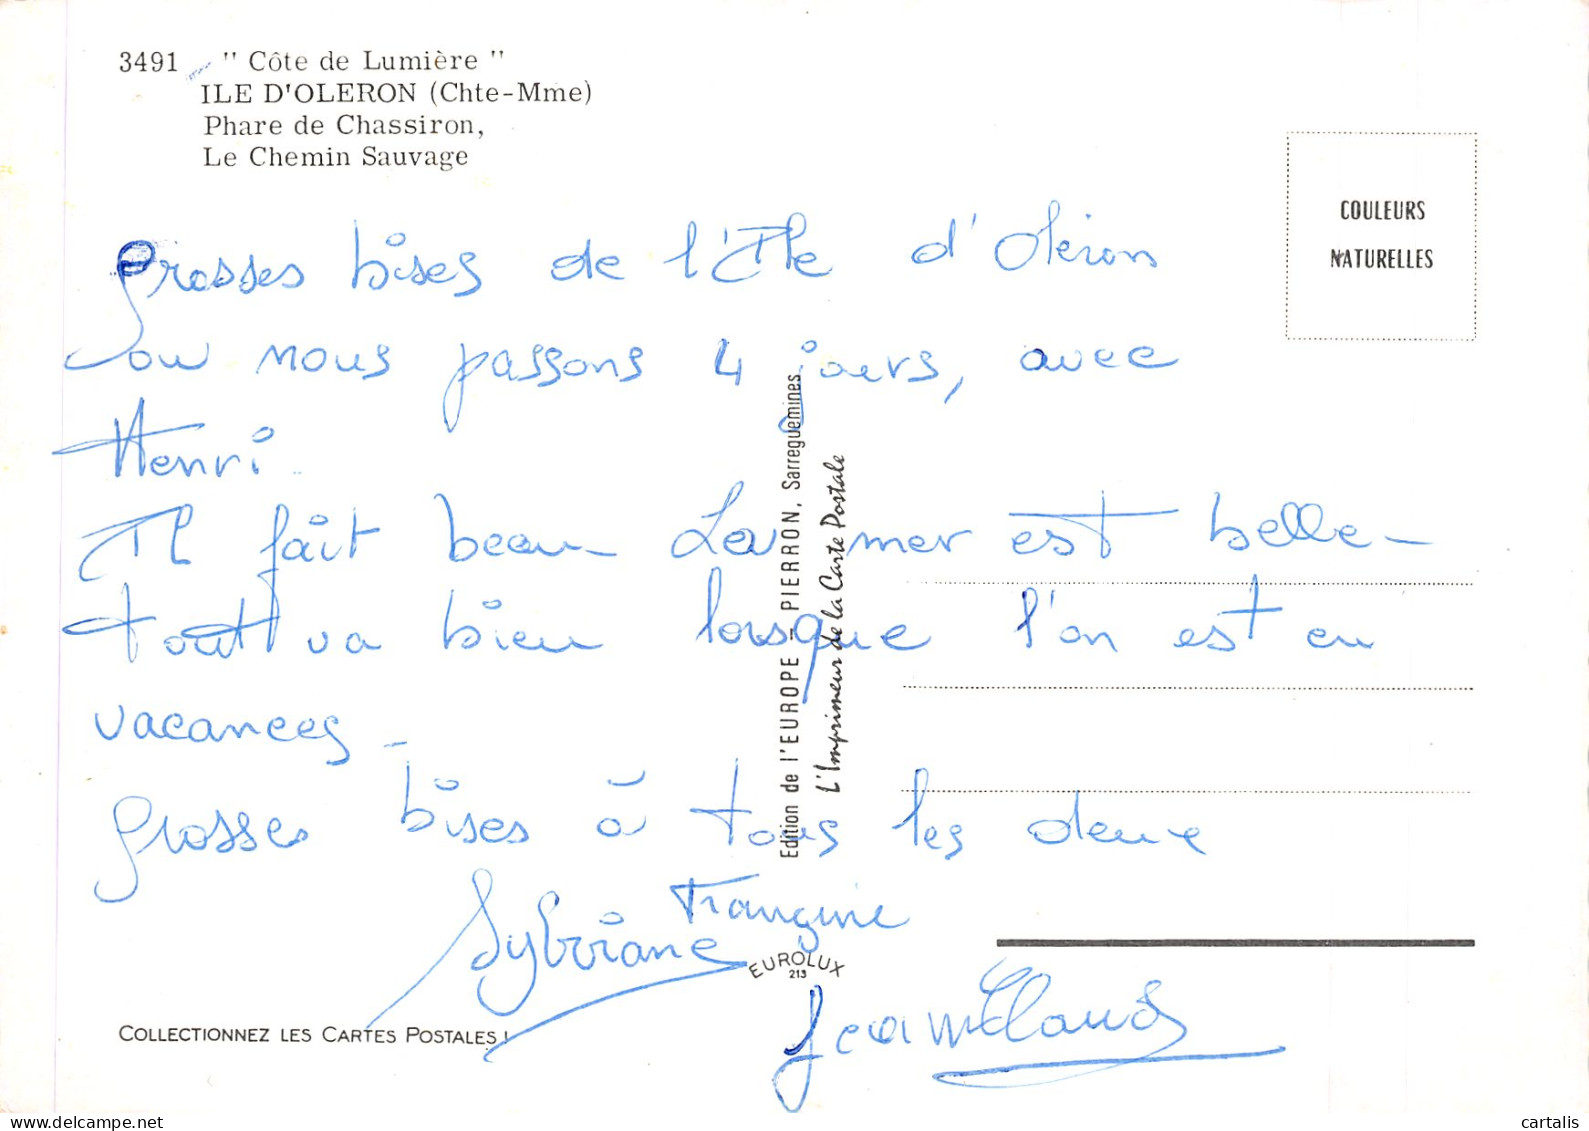 3491 " Côte de Lumière "
ILE D'OLERON (Chte-Mme)
Phare de Chassiron,
Le Chemin Sauvage
COULEURS
NATURELLES
Grosses bises de l'Ile d'Oléron
ou nous passons 4 jours, avec
Henri.
Il fait beau - La mer est belle -
tout va bien lorsque l'on est en
vacances -
Grosses bises à tous les deux
Francine
Sylviane
Jean Claude
Edition de l'EUROPE - PIERRON, Sarreguemines
L'Imprimeur de la Carte Postale
EUROLUX
213
COLLECTIONNEZ LES CARTES POSTALES !
www.delcampe.net
cartalis